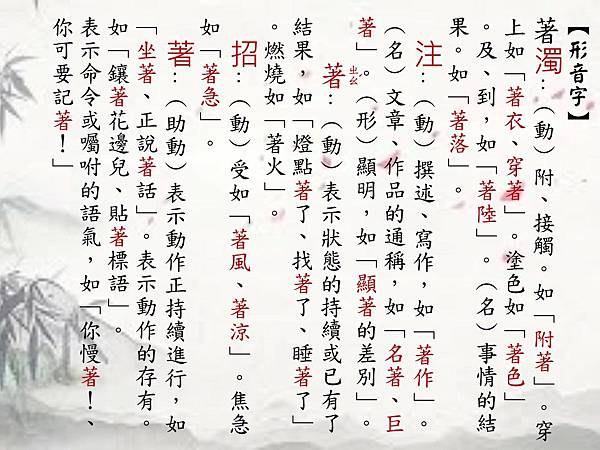 【形音字】
著濁：（動）附、接觸。如「附著」。穿
上如「著衣、穿著」。塗色如「著色」
。及、到，如「著陸」。（名）事情的結
果。如「著落」。
注：（動）撰述、寫作，如「著作」。
（名）文章、作品的通稱，如「名著、巨
著」。（形）顯明，如「顯著的差別」。
著ㄓㄠ：（動）表示狀態的持續或已有了
結果，如「燈點著了、找著了、睡著了」
。燃燒如「著火」。
招：（動）受如「著風、著涼」。焦急
如「著急」。
著：（助動）表示動作正持續進行，如
「坐著、正說著話」。表示動作的存有。
如「鑲著花邊兒、貼著標語」。
表示命令或囑咐的語氣，如「你慢著！、
你可要記著！」